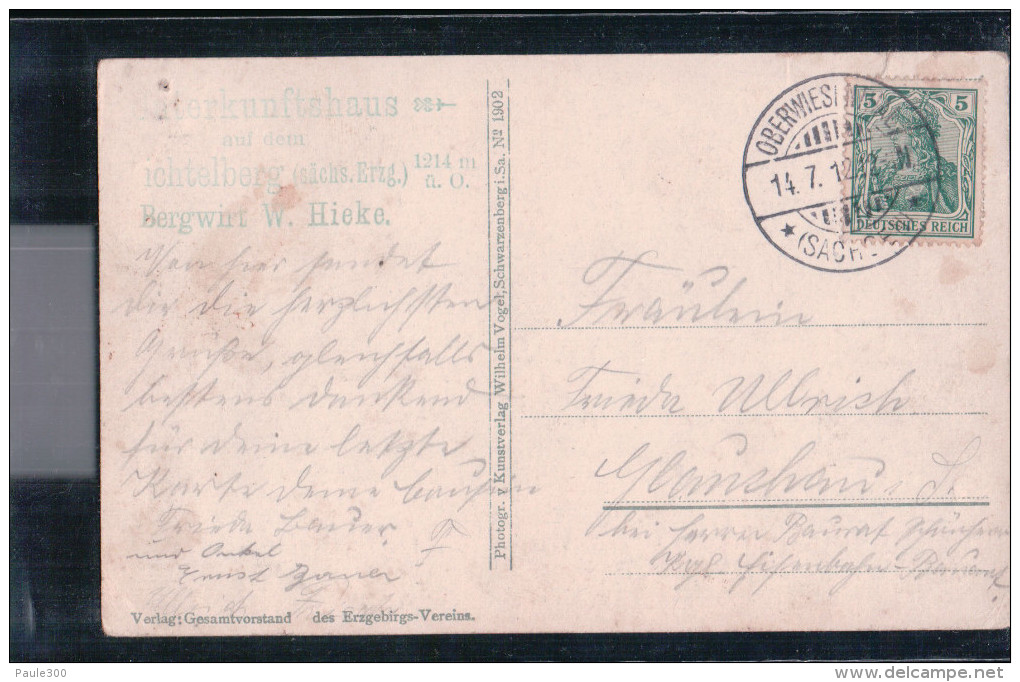 Unterkunftshaus
auf dem
Fichtelberg (sächs. Erzg.) 1214 m ü. O.
Bergwirt W. Hieke.
Von hier sendet
Dir die herzlichsten
Grüße, gleichfalls
bestens dankend
für deine letzte
Karte deine Cousin
Frieda Bauer
und Onkel
Ernst Bauer
Verlag: Gesamtvorstand des Erzgebirgs-Vereins.
Photogr. v. Kunstverlag Wilhelm Vogel, Schwarzenberg i. Sa. No 1902
OBERWIES
14.7.12
(SACH
5 5
DEUTSCHES REICH
Fräulein
Frieda Ullrich
Glauchau, S.
bei Herrn Baurat
Kgl. Eisenbahn-
Paule300
delcampe.net